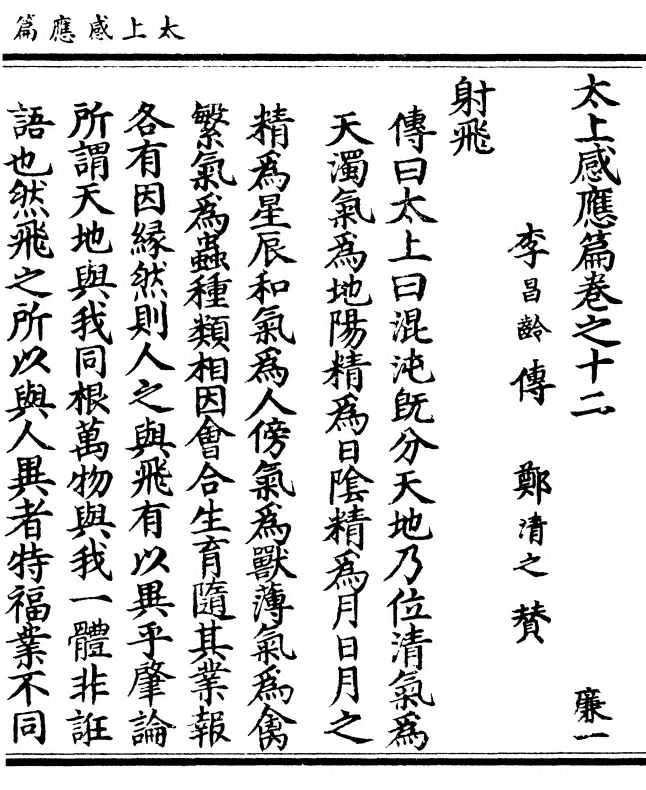 太上感應篇
太上感應篇卷之十二
李昌齡傳　鄭清之贊　廉一
射飛
傳曰太上曰混沌旣分天地乃位清氣爲
天濁氣爲地陽精爲日陰精爲月日月之
精爲星辰和氣爲人傍氣爲獸薄氣爲禽
繁氣爲蟲種類相因會合生育隨其業報
各有因緣然則人之與飛有以異乎肇論
所謂天地與我同根萬物與我一體非誑
語也然飛之所以與人異者特福業不同